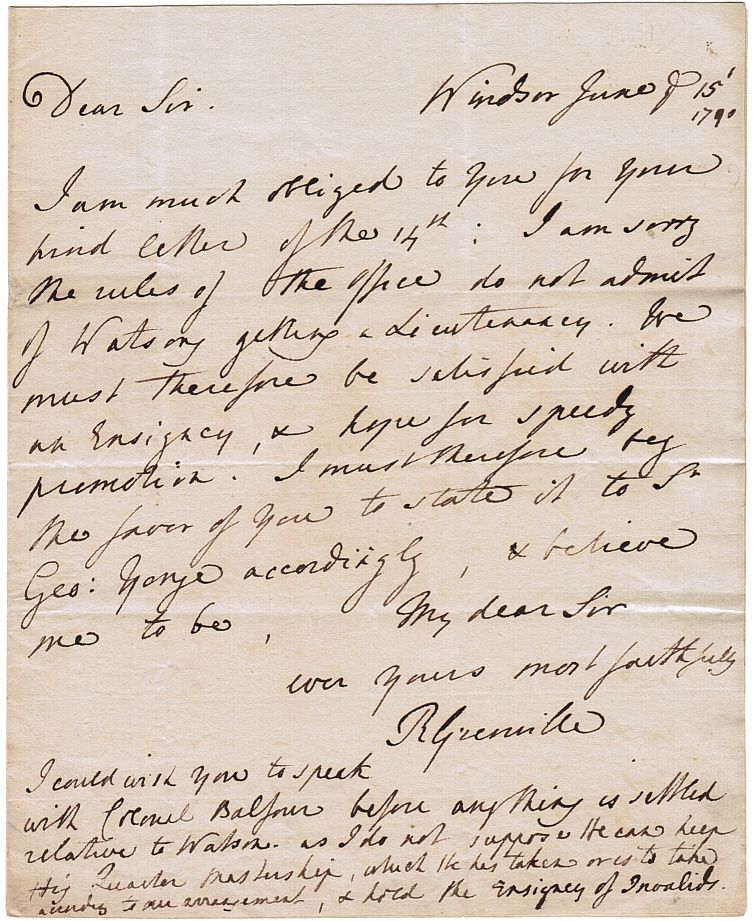 Dear Sir. Windsor June ye 15
1790
I am much obliged to You for Your
kind letter of the 14th: I am sorry
the rules of the Office do not admit
of Watsons getting a Lieutenancy. We
must therefore be satisfied with
an Ensigncy, & hope for speedy
promotion. I must therefore beg
the favor of You to state it to Sr
Geo: Yonge accordingly, & believe
me to be, My dear Sir
ever Yours most faithfully
RGrenville
I could wish You to speak
with Colonel Balfour before anything is settled
relative to Watson. as I do not suppose He can keep
His Quarter Mastership, which He has taken or is to take
according to our arrangement, & hold the Ensigncy of Invalids.